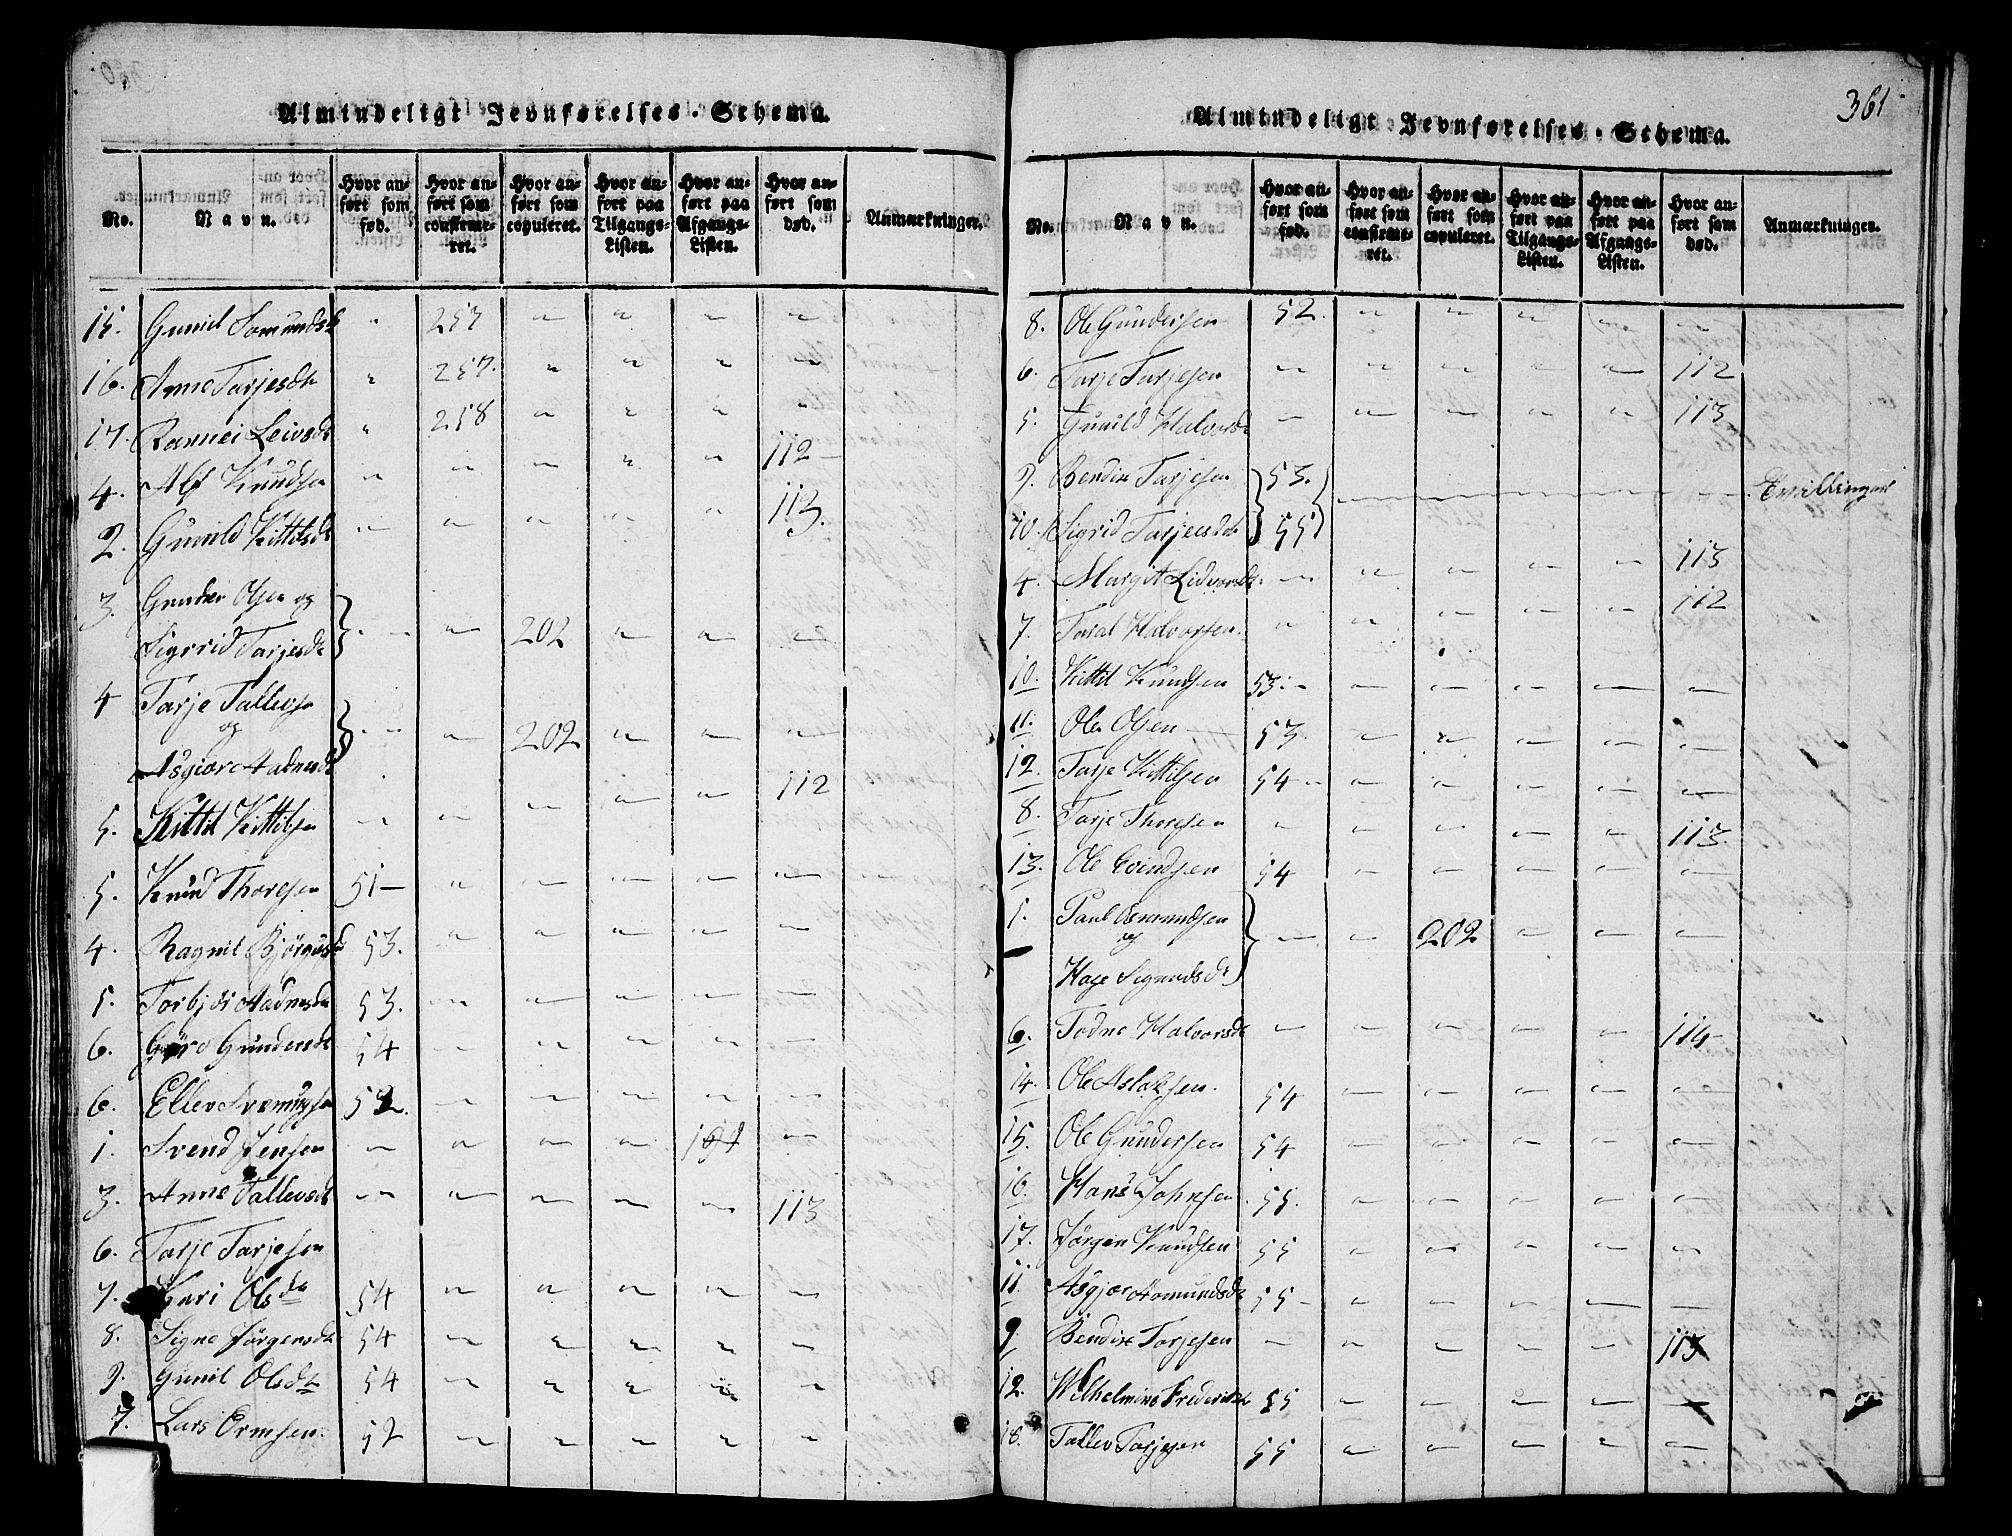 Almindeligt Jevnførelses-Schema.
No. | Navn. | Hvor anført som fød. | Hvor anført som confirmeret. | Hvor anført som copuleret. | Hvor anført paa Tilgangs-Listen. | Hvor anført paa Afgangs-Listen. | Hvor anført som død. | Anmærkninger.
15. Gunild Somundsd " 257 " " " "
16. Anne Tarjesdt " 257. " " " "
17. Rannei Leivsdt " 258 " " " "
4. Alf Knudsen " " " " " 112
2. Gunild Kittilsdt " " " " " 113.
3. Gunder Olsen og
Sigrid Tarjesdt " " 202 " " "
4 Tarje Tallevsen
og
Asgjær Aadnesdt " " 202 " " "
5. Kittil Kittilsen " " " " " 112
5. Knud Thoresen 51 " " " " " "
4. Ragnil Bjørgusd 53. " " " " "
5. Torbjør Aadnesdt 53. " " " " "
6. Gyro Gundersdt 54 " " " " "
6. Ellev 52. " " " " "
1. Svend Jensen " " " " 191 "
3. Anne Tallevsdt " " " " " 113
6. Tarje Tarjesen
7. Kari Olsdtr 54 " " " " "
8. Signe Jørgensdt 54 " " " " "
9. Gunil Olsdtr 54 " " " " "
7. Lars Ormsen. 52 " " " " "
361
Almindeligt Jevnførelses-Schema.
No. | Navn. | Hvor anført som fød. | Hvor anført som confirmeret. | Hvor anført som copuleret. | Hvor anført paa Tilgangs-Listen. | Hvor anført paa Afgangs-Listen. | Hvor anført som død. | Anmærkninger.
8. Ole Gundersen 52. " " " " "
6. Tarje Tarjesen " " " " " 112
5. Gunild Halvorsdt " " " " " 113
9. Bendix Tarjesen 53. " " " " " Tvillinger
10. Sigrid Tarjesdt 55
4. Margit Lidvorsdt " " " " " 113
7. Taral Halvorsen " " " " " 112
10. Kittil Knudsen 53. " " " " "
11. Ole Olsen 53. " " " " "
12. Tarje Kittilsen 54 " " " " "
8. Tarje Thoresen " " " " " 113.
13. Ole Evindsen 54 " " " " "
1. Paul Osmundsen
og
Hage Sigurdsdt " " 202 " " "
6. Todne Halvorsdt " " " " " 114
14. Ole Aslaksen. 54 " " " " "
15. Ole Gundersen 54 " " " " "
16. Hans Johnsen 55. " " " " "
17. Jørgen Knudsen 55 " " " " "
11. Asgjær Aomundsdt 55 " " " " "
9. Bendix Tarjesen " " " " " 113
12. Wilhelmine Frederiksdt 55 " " " " "
18. Tallev Tarjesen 55 " " " " "